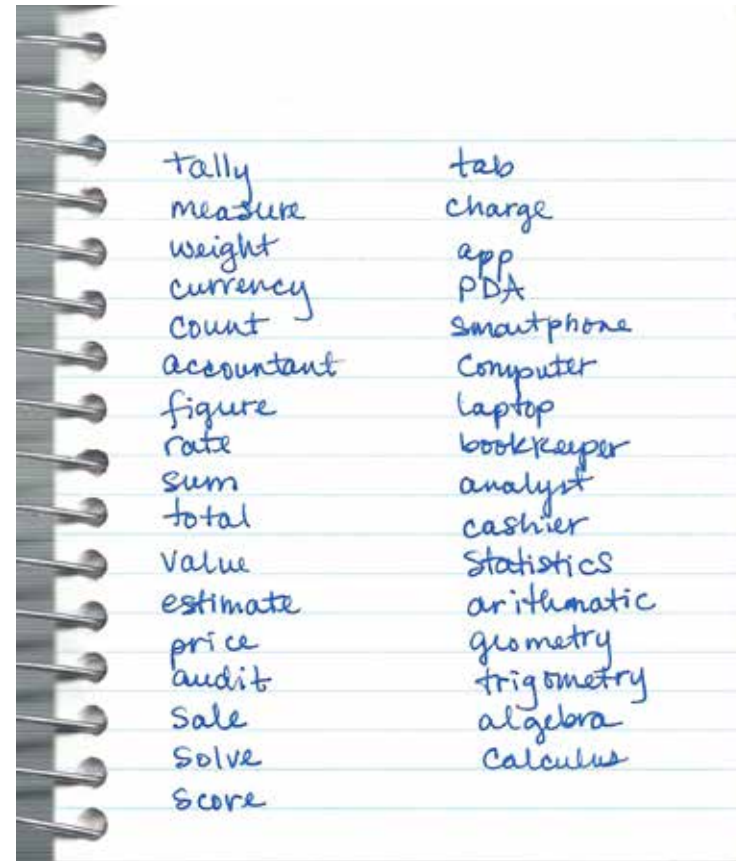 tally
measure
weight
currency
count
accountant
figure
rate
sum
total
value
estimate
price
audit
Sale
Solve
Score
tab
charge
app
PDA
Smartphone
Computer
laptop
bookkeeper
analyst
cashier
Statistics
arithmatic
geometry
trigometry
algebra
Calculus